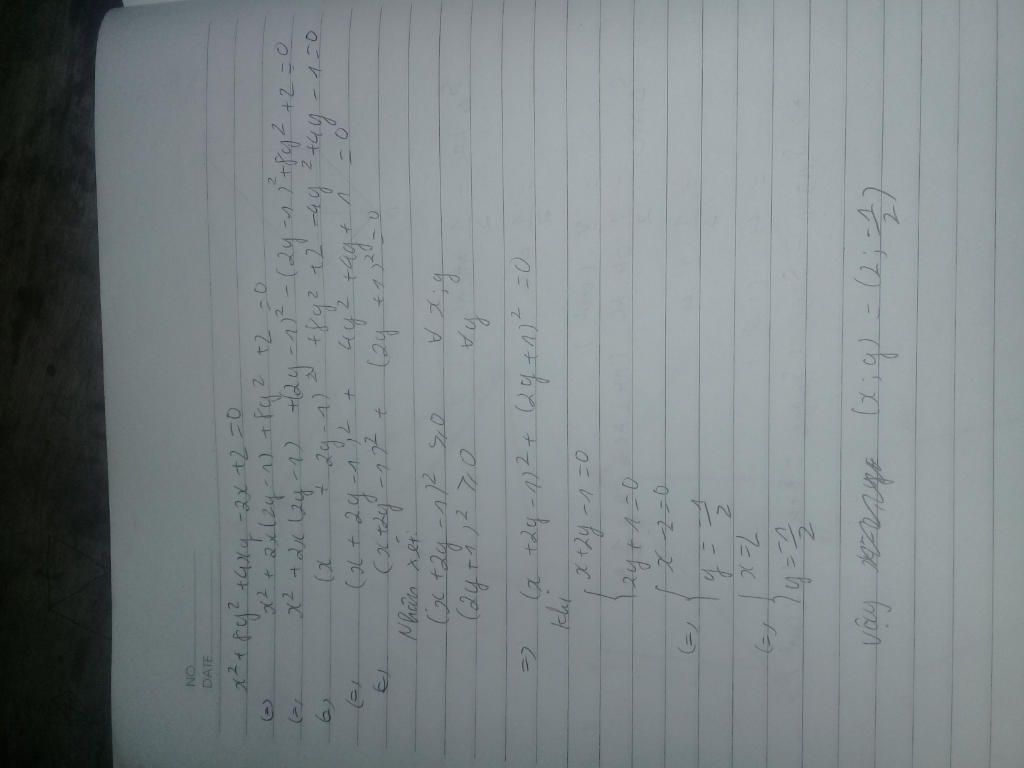 NO.
DATE
x² + 8y² + 4xy - 2x + 2 = 0
(=) x² + 2x(2y - 1) + 8y² + 2 = 0
(=) x² + 2x(2y - 1) + (2y - 1)² - (2y - 1)² + 8y² + 2 = 0
(=) (x + 2y - 1)² + 8y² + 2 - 4y² + 4y - 1 = 0
(=) (x + 2y - 1)² + 4y² + 4y + 1 = 0
(=) (x + 2y - 1)² + (2y + 1)² = 0
Nhận xét
(x + 2y - 1)² ≥ 0 ∀ x, y
(2y + 1)² ≥ 0 ∀ y
=> (x + 2y - 1)² + (2y + 1)² = 0
khi { x + 2y - 1 = 0
2y + 1 = 0
(=) { x - 2 = 0
y = -1/2
(=) { x = 2
y = -1/2
Vậy (x; y) = (2; -1/2)